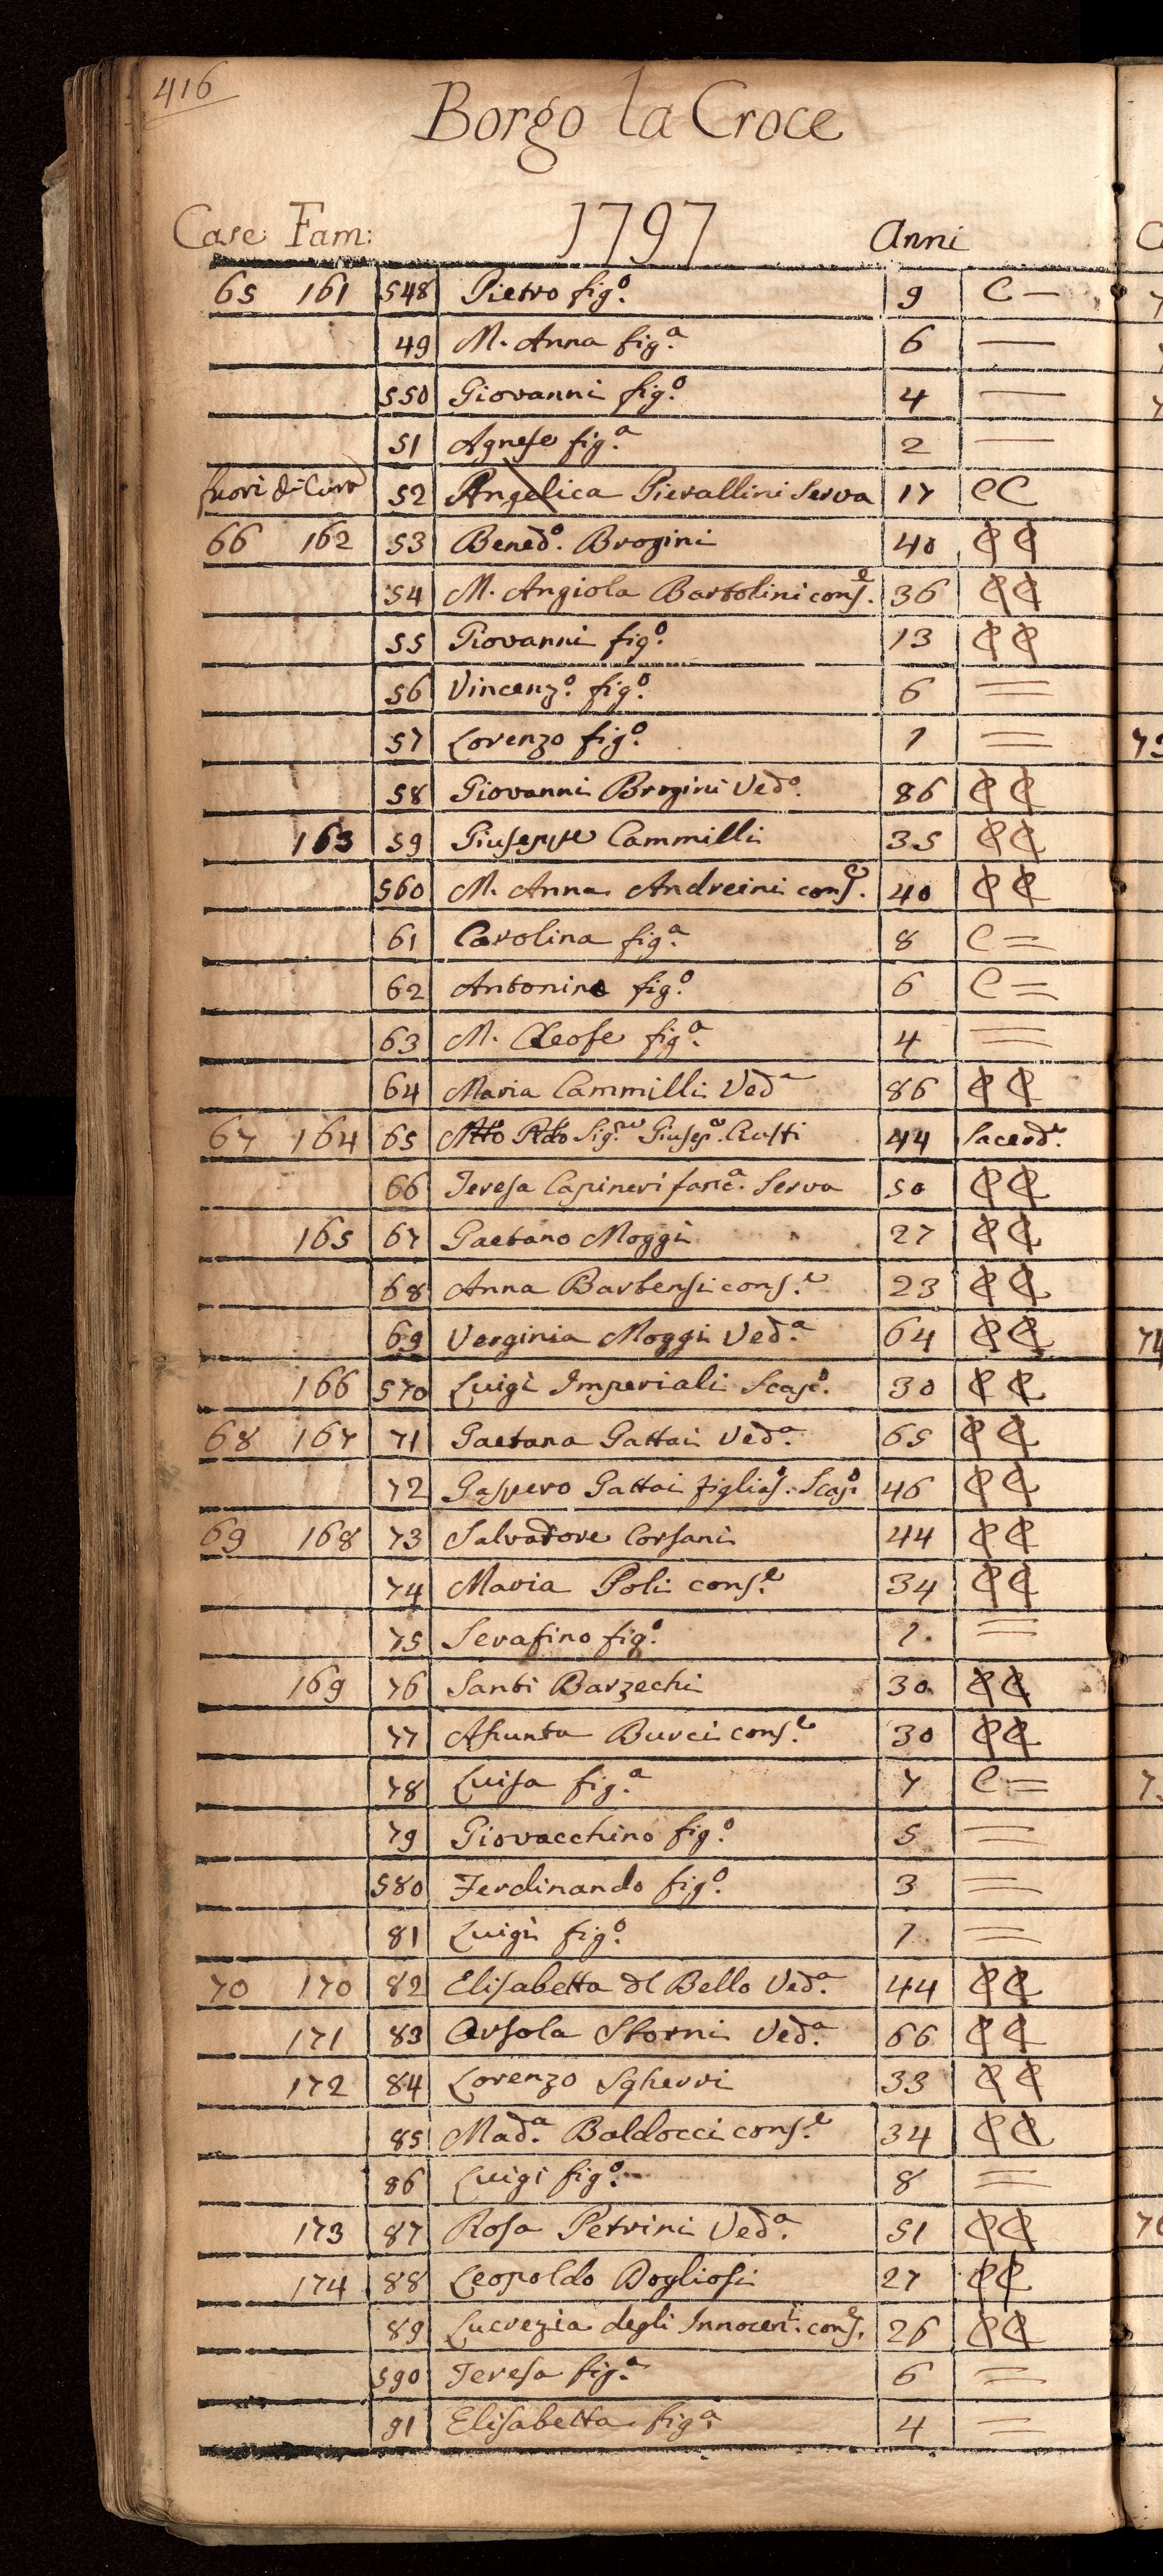 416
Borgo la Croce
1797
Case Fam: Anni
65 161 548 Pietro fig.o 9 C —
49 M. Anna fig.a 6 —
550 Giovanni fig.o 4 —
51 Agnese fig.a 2 —
fuori di Cura 52 Angelica Pierallini Serva 17 CC
66 162 53 Bened.o Brogini 40 C C
54 M. Angiola Bartolini cons.e 36 C C
55 Giovanni fig.o 13 C C
56 Vincenz.o fig.o 6 =
57 Lorenzo fig.o 1 =
58 Giovanni Brogini Ved.o 86 C C
163 59 Giuseppe Cammilli 35 C C
560 M. Anna Andreini cons.e 40 C C
61 Carolina fig.a 8 C =
62 Antonino fig.o 6 C =
63 M. Cleofe fig.a 4 =
64 Maria Cammilli Ved.a 86 C C
67 164 65 Mto Rdo Sig.re Giusep.e 44 Sacerd.e
66 Teresa Capineri fanc.a Serva 50 C C
165 67 Gaetano Moggi 27 C C
68 Anna Bartensi cons.e 23 C C
69 Verginia Moggi Ved.a 64 C C
166 570 Luigi Imperiali Scap.o 30 C C
68 167 71 Gaetana Gattai Ved.a 65 C C
72 Gaspero Gattai Scap.o 46 C C
69 168 73 Salvadore Corsani 44 C C
74 Maria Poli cons.e 34 C C
75 Serafino fig.o 1 =
169 76 Santi Barzechi 30 C C
77 Assunta Burci cons.e 30 C C
78 Luisa fig.a 7 C =
79 Giovacchino fig.o 5 =
580 Ferdinando fig.o 3 =
81 Luigi fig.o 1 =
70 170 82 Elisabetta del Bello Ved.a 44 C C
171 83 Orsola Storni Ved.a 66 C C
172 84 Lorenzo Sgherri 33 C C
85 Mad.a Baldocci cons.e 34 C C
86 Luigi fig.o 8 =
173 87 Rosa Petrini Ved.a 51 C C
174 88 Leopoldo Dogliosi 27 C C
89 Lucrezia degli Innocen.ti cons.e 26 C C
590 Teresa fig.a 6 =
91 Elisabetta fig.a 4 =